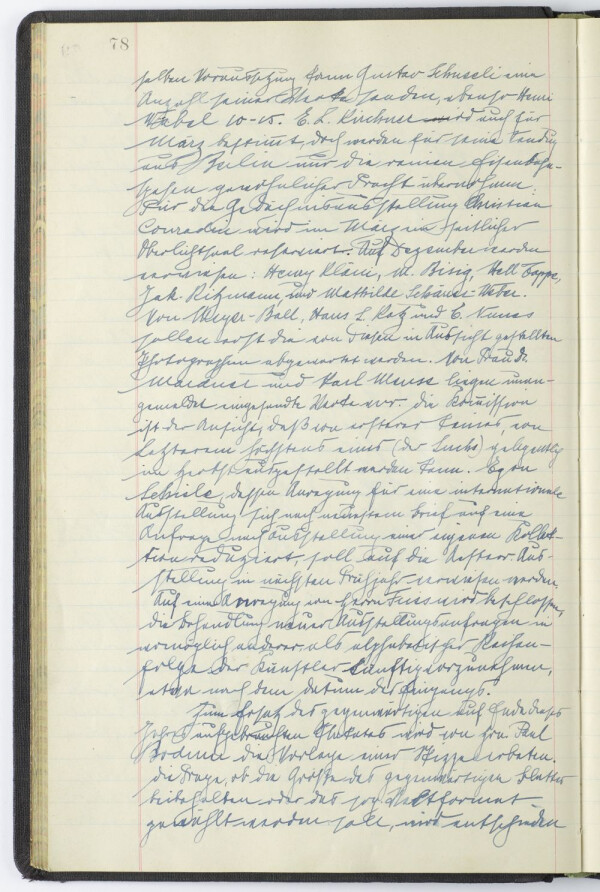 78
selben Voraussetzung kann Gustav Schneeli eine
Anzahl seiner Werke senden, ebenso Henri
Wabel 10-15. E. L. Kirchner wird auch für
März bestimmt, doch werden für seine Sendg
aus Berlin nur die reinen Eisenbahn-
spesen gewöhnlicher Fracht übernommen.
Für die Gedächtnisausstellung Christian
Conradin wird im März ein seitlicher
Oberlichtsaal reserviert. Auf Dezember werden
verwiesen: Henry Klein, M. Bing,
Jak. Ritzmann, und Mathilde
Von Weyer-Balt, Hans L Katz und E.
sollen erst die von diesen in Aussicht gestellten
Photographien abgewartet werden. Von Frau Dr.
und Karl Mense liegen unan-
gemeldet eingesandte Werke vor. die Komission
ist der Ansicht, daß von ersterer keines, von
Letzterem höchstens eines (der Fuchs) gelegentlich
im Herbst ausgestellt werden kann. Egon
Schiele, dessen Anregung für eine internationale
Ausstellung sich nach neuestem Brief auf eine
Anfrage nach Ausstellung einer eigenen Kollek-
tion reduziert, soll auf die Aus-
stellung im nächsten Frühjahr verwiesen werden.
Auf eine Anregung von Herrn wird beschlossen,
die Behandlung neuer Ausstellungsanfragen in
womöglich anderer als alphabetischer Reihen-
folge der Künstler künftig vorzunehmen,
etwa nach dem datum des Eingangs.
Zum Ersatz des gegenwärtigen auf Ende dieses
Jahres aufgebrauchten Plakates wird von Hrn. Paul
Bodmer die Vorlage einer Skizze erbeten.
die Frage, ob die Größe des gegenwärtigen Blattes
beibehalten oder das sog Weltformat
gewählt werden soll, wird entschieden